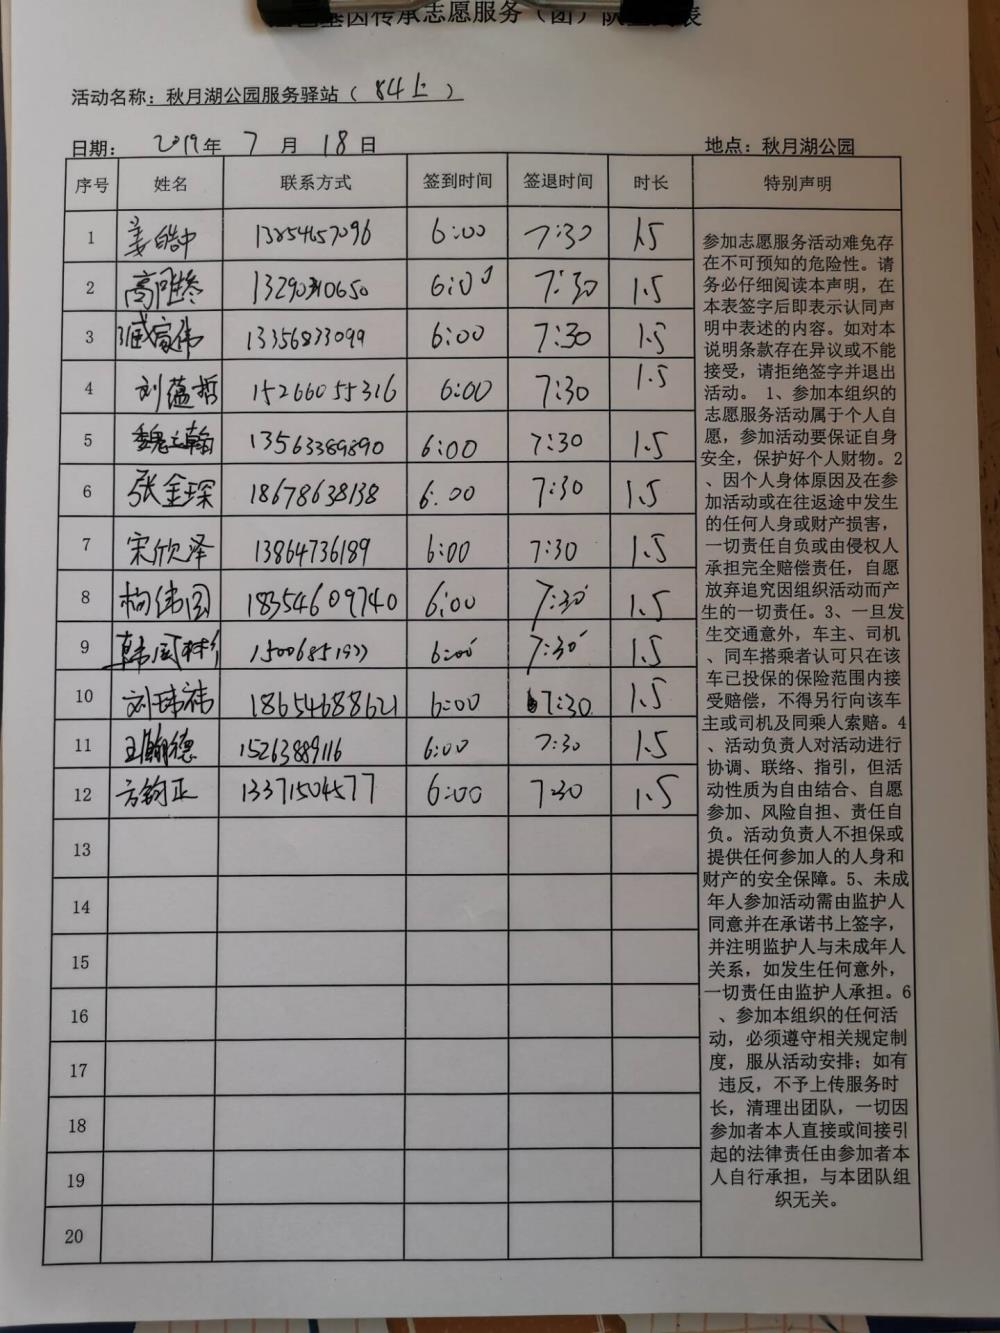 基因传承志愿服务（团）队
活动名称：秋月湖公园服务驿站（84上）
日期： 2019年 7 月 18 日 地点：秋月湖公园
序号 姓名 联系方式 签到时间 签退时间 时长 特别声明
1 姜皓中 13854657096 6:00 7:30 1.5
2 13290310650 6:00 7:30 1.5
3 臧家伟 13356833099 6:00 7:30 1.5
4 刘蕴哲 15266055316 6:00 7:30 1.5
5 13563389890 6:00 7:30 1.5
6 张金琛 18678638138 6:00 7:30 1.5
7 宋欣泽 13864736189 6:00 7:30 1.5
8 18354609740 6:00 7:30 1.5
9 6:00 7:30 1.5
10 刘玮祎 18654688621 6:00 7:30 1.5
11 王翰德 15263889116 6:00 7:30 1.5
12 方钧正 13371504577 6:00 7:30 1.5
13
14
15
16
17
18
19
20
参加志愿服务活动难免存
在不可预知的危险性。请
务必仔细阅读本声明，在
本表签字后即表示认同声
明中表述的内容。如对本
说明条款存在异议或不能
接受，请拒绝签字并退出
活动。 1、参加本组织的
志愿服务活动属于个人自
愿，参加活动要保证自身
安全，保护好个人财物。2
、因个人身体原因及在参
加活动或在往返途中发生
的任何人身或财产损害，
一切责任自负或由侵权人
承担完全赔偿责任，自愿
放弃追究因组织活动而产
生的一切责任。3、一旦发
生交通意外，车主、司机
、同车搭乘者认可只在该
车已投保的保险范围内接
受赔偿，不得另行向该车
主或司机及同乘人索赔。4
、活动负责人对活动进行
协调、联络、指引，但活
动性质为自由结合、自愿
参加、风险自担、责任自
负。活动负责人不担保或
提供任何参加人的人身和
财产的安全保障。5、未成
年人参加活动需由监护人
同意并在承诺书上签字，
并注明监护人与未成年人
关系，如发生任何意外，
一切责任由监护人承担。6
、参加本组织的任何活
动，必须遵守相关规定制
度，服从活动安排；如有
违反，不予上传服务时
长，清理出团队，一切因
参加者本人直接或间接引
起的法律责任由参加者本
人自行承担，与本团队组
织无关。